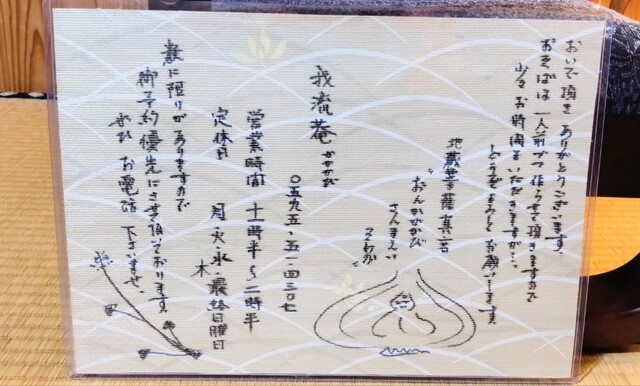 おいで頂き ありがとうございます。
おそばは 一人前づつ作らせて頂きますので
少々お時間をいただきますが…
どうぞよろしくお願いします
地蔵菩薩真言
"おんかかかび
さんまえい
そわか
我流菴 かかかび
〇五九五-五一-四三〇七
営業時間 十一時半〜二時半
定休日 月・火・水・最終日曜日
木
数に限りがありますので
御予約優先にさせて頂いております。
ぜひ お電話 下さいませ。